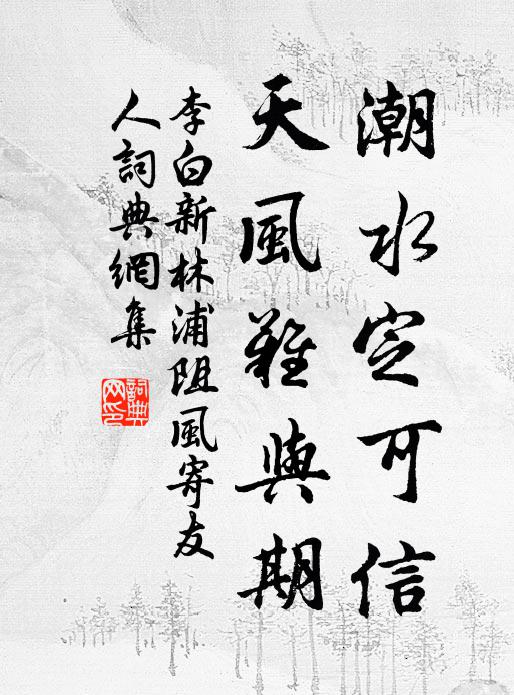 潮水定可信
天風難與期
李白新林浦阻風寄友
人詞典網集
詞典網印